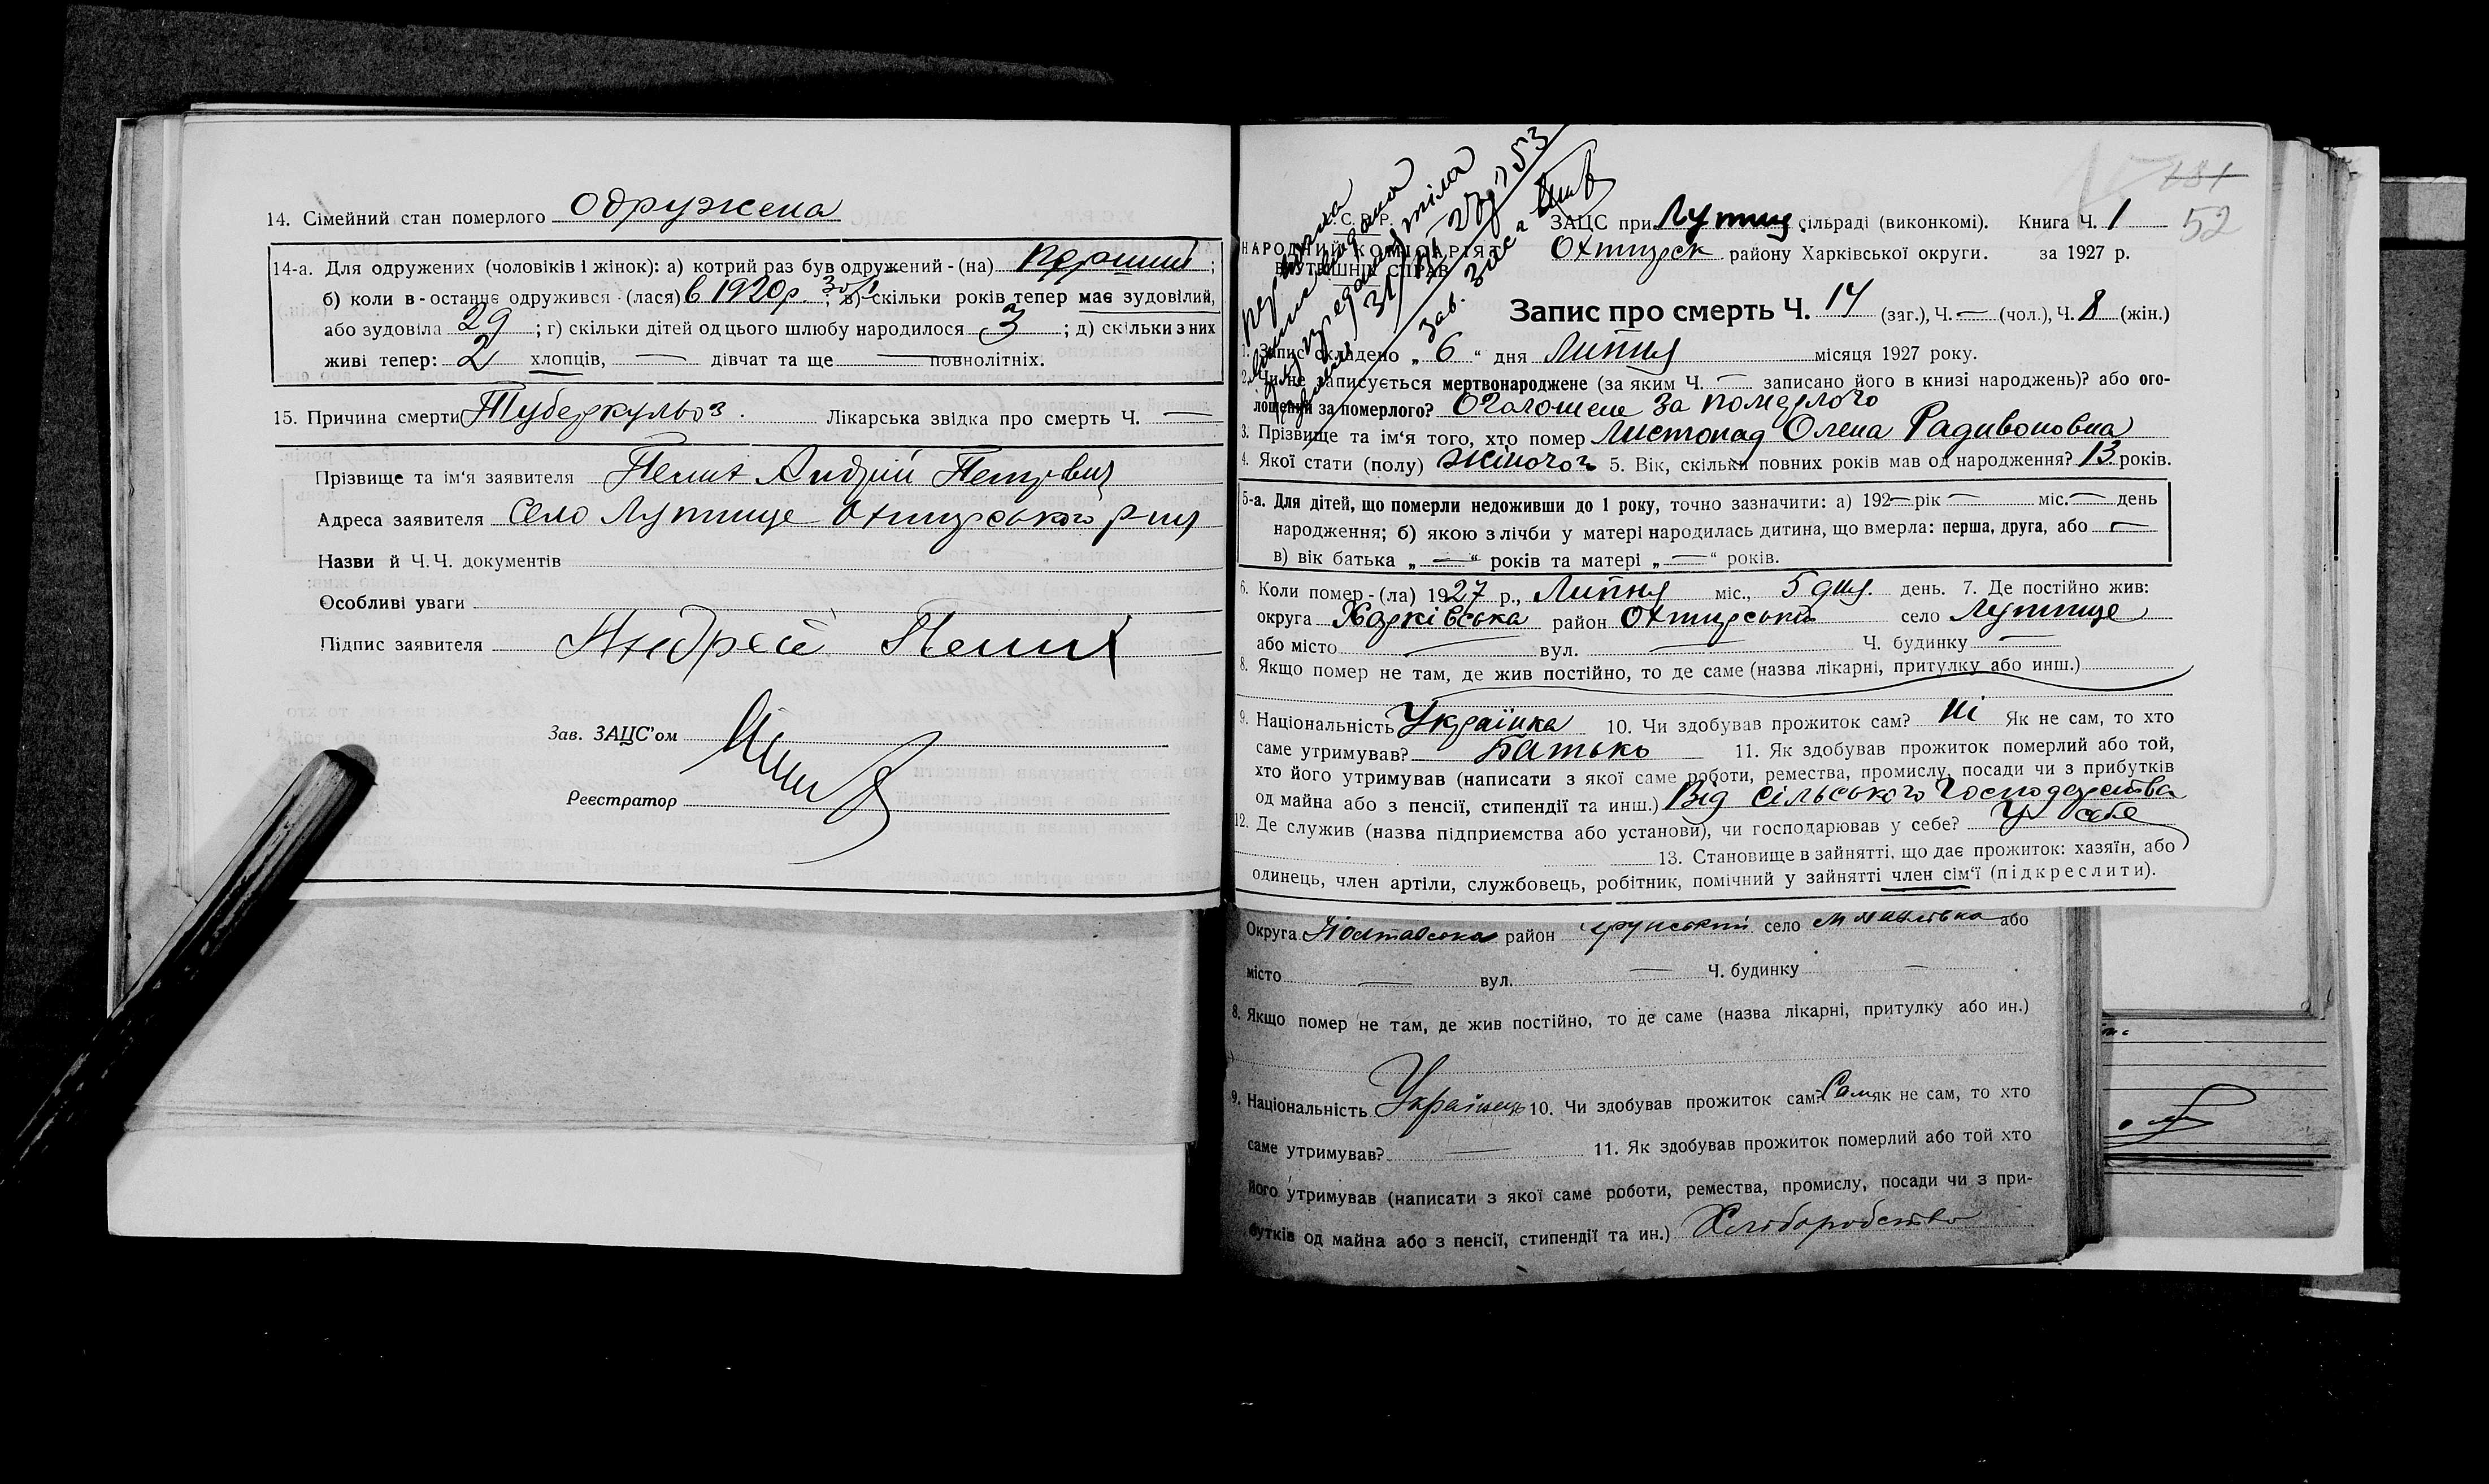 14. Сімейний стан померлого одружена
14-а. Для одружених (чоловіків і жінок): а) котрий раз був одружений - (на) перший ;
б) коли в - останнє одружився (лася) в 1920 р. ; в) скільки років тепер має зудовілий,
або зудовіла 29 ; г) скільки дітей од цього шлюбу народилося 3 ; д) скільки з них
живі тепер: 2 хлопців, — дівчат та ще — повнолітніх.
15. Причина смерти Туберкульоз . Лікарська звідка про смерть Ч. —
Прізвище та ім'я заявителя Андрій Петрович
Адреса заявителя село Лутище Охтирського р-ну
Назви й Ч. Ч. документів
Особливі уваги
Підпис заявителя Андрей
Зав. ЗАЦС'ом
Реєстратор
181
52
У. С. Р. Р.
НАРОДНИЙ КОМІСАРІЯТ
ВНУТРІШНІХ СПРАВ
53
Зав. Загса
ЗАЦС при Лутищ. сільраді (виконкомі). Книга Ч. 1
Охтирск району Харківської округи. за 1927 р.
Запис про смерть Ч. 14 (заг.), Ч. — (чол.), Ч. 8 (жін.)
1. Запис складено „ 6 " дня Липня місяця 1927 року.
2. Чи не записується мертвонароджене (за яким Ч. — записано його в книзі народжень)? або ого-
лошений за померлого? Оголошене за померлого
3. Прізвище та ім'я того, хто помер Листопад Олена Радивоновна
4. Якої стати (полу) жіночої 5. Вік, скільки повних років мав од народження? 13 років.
5-а. Для дітей, що померли недоживши до 1 року, точно зазначити: а) 192— рік — міс. — день
народження; б) якою з лічби у матері народилась дитина, що вмерла: перша, друга, або —
в) вік батька „ — " років та матері „ — " років.
6. Коли помер - (ла) 1927 р., Липня міс., 5 дня. день. 7. Де постійно жив:
округа Харківська район Охтирський село Лутище
або місто — вул. — Ч. будинку —
8. Якщо помер не там, де жив постійно, то де саме (назва лікарні, притулку або инш.)
9. Національність Українка 10. Чи здобував прожиток сам? Ні Як не сам, то хто
саме утримував? Батько 11. Як здобував прожиток померлий або той,
хто його утримував (написати з якої саме роботи, ремества, промислу, посади чи з прибутків
од майна або з пенсії, стипендії та инш.) Від сільського господарства
12. Де служив (назва підприємства або установи), чи господарював у себе? У себе
13. Становище в зайнятті, що дає прожиток: хазяїн, або
одинець, член артіли, службовець, робітник, помічний у зайнятті член сім'ї (підкреслити).
Округа Полтавська район село або
місто — вул. — Ч. будинку —
8. Якщо помер не там, де жив постійно, то де саме (назва лікарні, притулку або ин.)
9. Національність Українець 10. Чи здобував прожиток сам? Сам як не сам, то хто
саме утримував? — 11. Як здобував прожиток померлий або той хто
його утримував (написати з якої саме роботи, ремества, промислу, посади чи з при-
бутків од майна або з пенсії, стипендії та ин.) Хліборобство